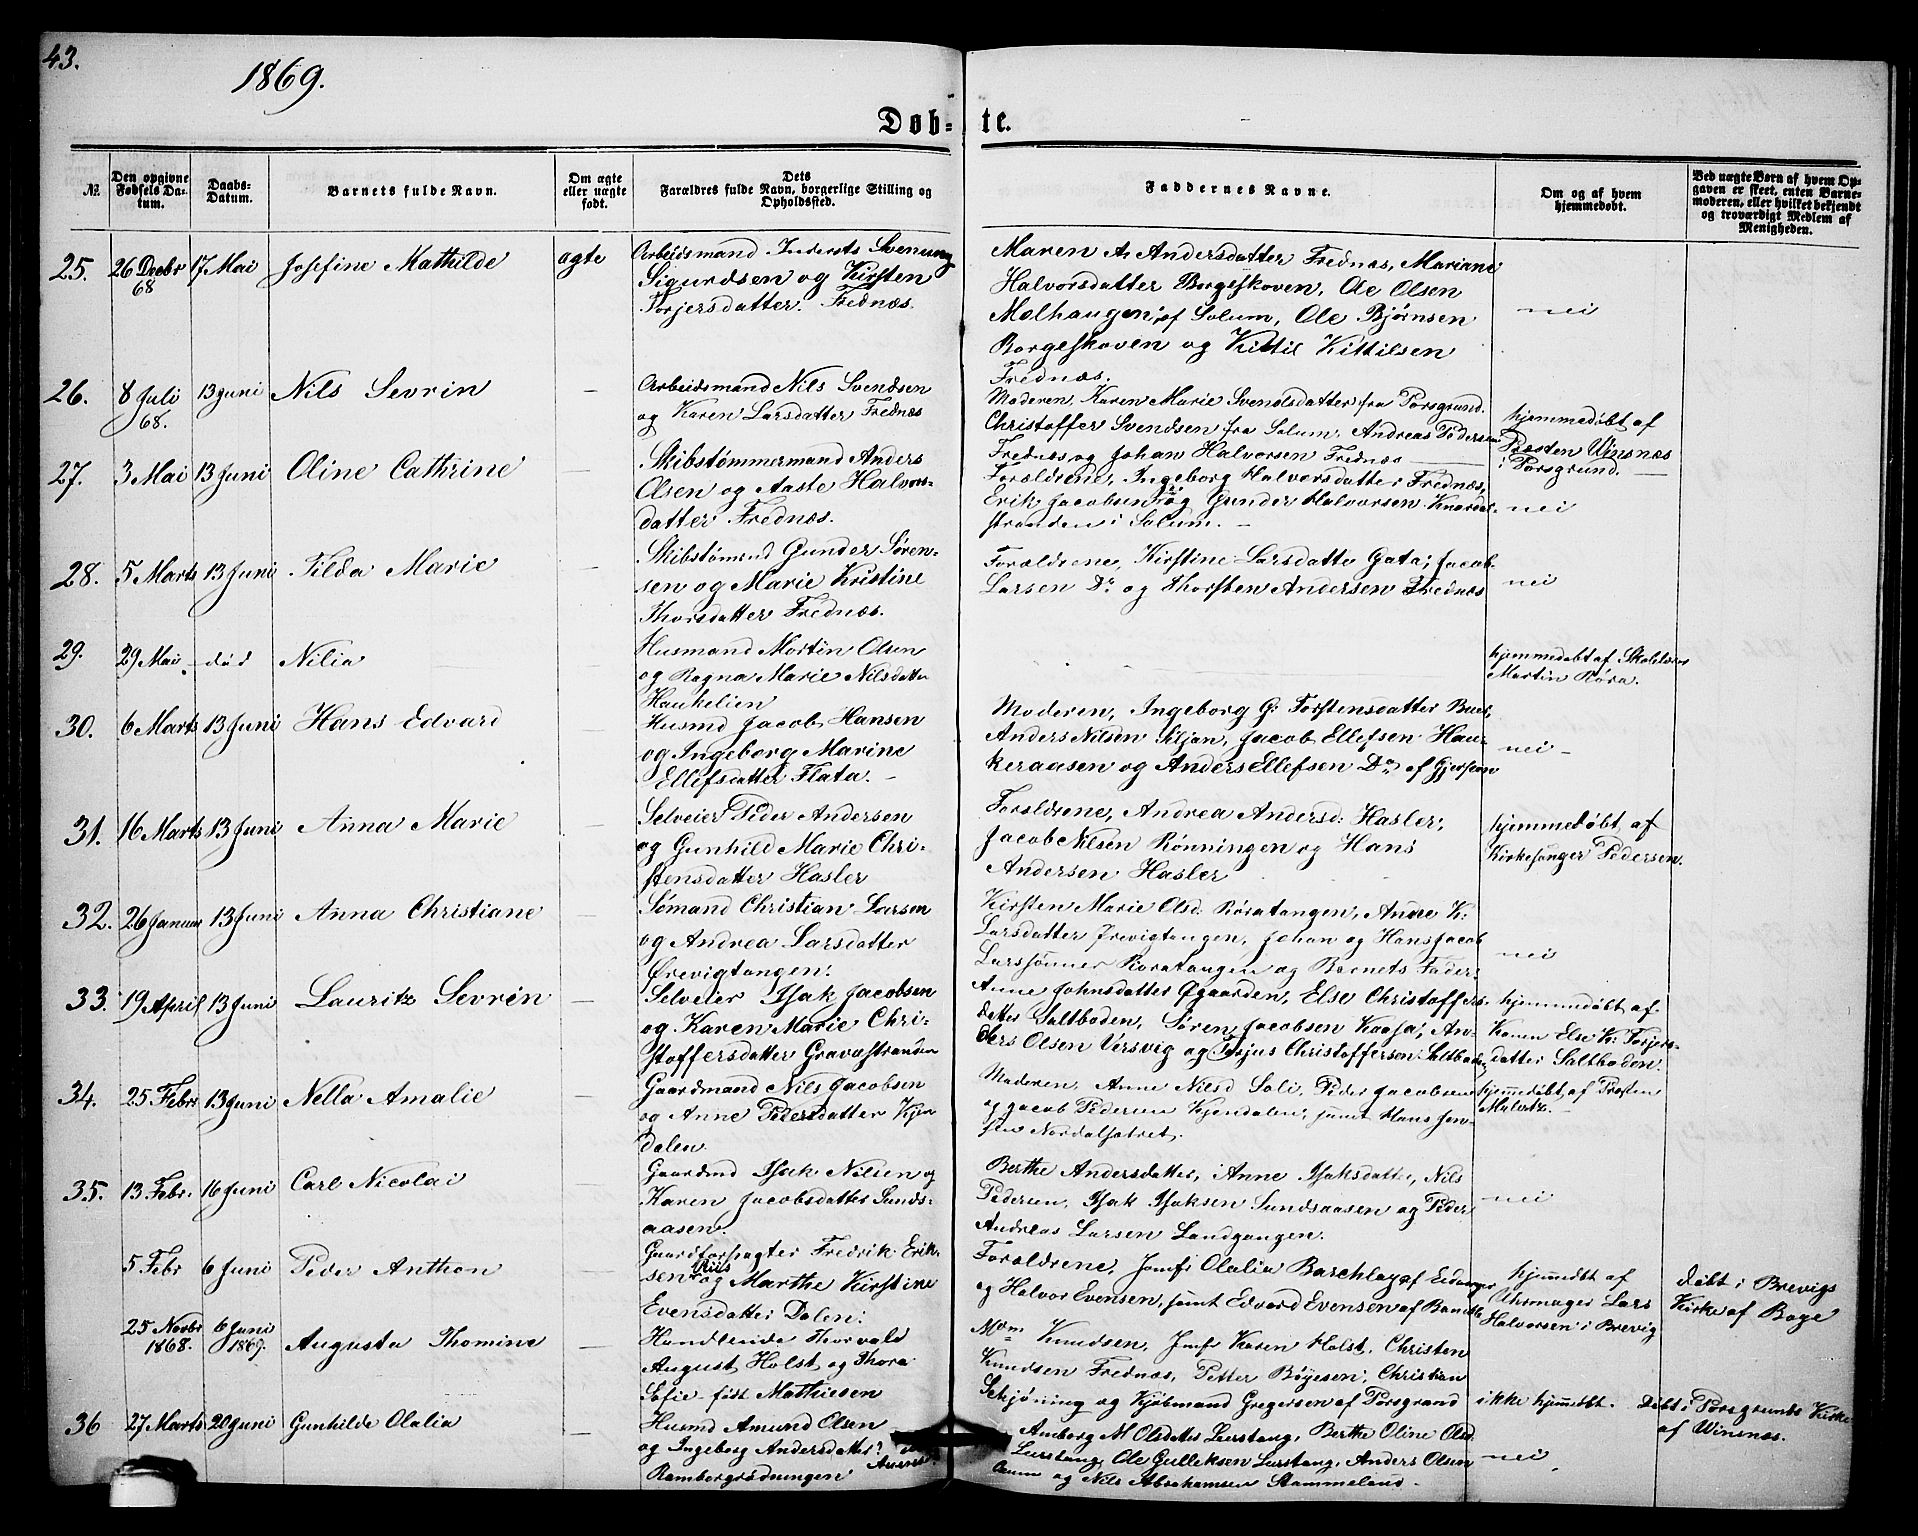 43.
1869.
Døb-te.
№
Den opgivne Fødsels Datum.
Daabs-Datum.
Barnets fulde Navn.
Om ægte eller uægte født.
Dets Forældres fulde Navn, borgerlige Stilling og Opholdssted.
Faddernes Navne.
Om og af hvem hjemmedøbt.
Ved uægte Børn af hvem Opgaven er skeet, enten Barnemoderen, eller hvilket bekjendt og troværdigt Medlem af Menigheden.
25. 26 Decbr 68 17 Mai Josefine Mathilde ægte
Arbeidsmand Inderst Svenung
Sigurdsen og Kirsten
Torjersdatter. Frednæs.
Maren A. Andersdatter Frednæs, Mariane
Halvorsdatter Borgeskoven, Ole Olsen
Molhaugen, af Solum, Ole Bjørnsen
Borgeskoven og Kittil Kittilsen
Frednæs.
nei
26. 8 Juli 68. 13 Juni Nils Sevrin —
Arbeidsmand Nils Svendsen
og Karen Larsdatter Frednæs
Moderen, Karen Marie Svendsdatter fra Porsgrund.
Christoffer Svendsen fra Solum, Andreas Pedersen
Frednæs og Johan Halvorsen Frednæs
hjemmedøbt af
Presten Winsnæs
i Porsgrund.
27. 3 Mai 13 Juni Oline Cathrine —
Skibstømmermand Anders
Olsen og Aaste Halvors-
datter Frednæs.
Forældrene, Ingeborg Halvorsdatter Frednæs,
Erik Jacobsen og Gunder Halvorsen Knardal-
stranden i Solum.
nei
28. 5 Marts 13 Juni Tilda Marie —
Skibstømmd Gunder Søren-
sen og Marie Kristine
Thorsdatter Frednæs.
Forældrene, Kirstine Larsdatte Gata, Jacob
Larsen Do og Thorsten Andersen Frednæs
nei
29. 29 Mai død Nilia
Husmand Martin Olsen
og Ragna Marie Nilsdatter
Haukelien
hjemmedøbt af Skolelærer
Martin Røra.
30. 6 Marts 13 Juni Hans Edvard —
Husmd Jacob Hansen
og Ingeborg Marine
Ellefsdatter Flata.
Moderen, Ingeborg G. Torstensdatter
Anders Nilsen Siljan, Jacob Ellefsen Hau-
keraasen og Anders Ellefsen Do af Gjerpen
nei
31. 16 Marts 13 Juni Anna Marie —
Selveier Peder Andersen
og Gunhild Marie Chri-
stensdatter Hasler
Forældrene, Andrea Andersd: Hasler,
Jacob Nilsen Rønningen og Hans
Andersen Hasler
hjemmedøbt af
Kirkesanger Pedersen.
32. 26 Januar 13 Juni Anna Christiane —
Sømand Christian Larsen
og Andrea Larsdatter
Ørevigtangen.
Kirsten Marie Olsd: Røratangen, Andre K.
Larsdatter Ørevigtangen, Johan og Hans Jacob
Larssønner Røratangen og Barnets Fader.
nei
33. 19 April 13 Juni Lauritz Sevrin —
Selveier Isak Jacobsen
og Karen Marie Chri-
stoffersdatter Gravastranden
Anne Johnsdatter Øgaarden, Else Christoffers-
datter Saltboden, Søren Jacobsen Kaasa, An-
ders Olsen Versvig og Terjus Christoffersen Saltboden
hjemmedøbt af
Konen Else K. Torjers-
datter Saltboden.
34. 25 Febr 13 Juni Nella Amalie —
Gaardmand Nils Jacobsen
og Anne Pedersdatter Kjen
dalen.
Moderen, Anne Nilsd Soli, Peder Jacobsen
og Jacob Pedersen Kjendalen, samt Hans Jen-
sen Nordalsætret.
hjemmedøbt af Presten
Malertz.
35. 13 Febr. 16 Juni Carl Nicolai —
Gaardmd Isak Nilsen og
Karen Jacobsdatter Sunds-
aasen.
Berthe Andersdatter, Anne Isaksdatter, Nils
Pedersen, Isak Isaksen Sundsaasen og Peder
Andreas Larsen Landgangen.
nei
5 Febr 6 Juni Peder Anthon —
Gaardforpagter Fredrik Erik-
sen Riis og Marthe Kirstine
Evensdatter Dalen.
Forældrene, Jomf: Olalia Barchlay af Eidanger
og Halvor Evensen, samt Edvard Evensen af Bamble
hjemmdbt af
Uhrmager Lars
Halvorsen i Brevig
Døbt i Brevigs
Kirke af Boye
25 Novbr 1868. 6 Juni 1869. Augusta Thomine —
Handlende Thorvald
August Holst og Thora
Sofie født Mathiesen
Mdm Knudsen, Jmf: Karen Holst, Christen
Knudsen Frednæs, Petter Bøyesen, Christian
Schjøning og Kjøbmand Gregersen af Porsgrund
ikke hjmmdøbt.
Døbt i Porsgrunds Kirke
af Winsnæs.
36 27 Marts 20 Juni Gunhilde Olalia
Husmd Amund Olsen
og Ingeborg Andersdatter
Ramborgrødningen
Amborg M Olsdatter Lerstang, Berthe Oline Olsd.
Lerstang, Ole Gulleksen Lerstang, Anders Olsen
og Nils Abrahamsen Stammeland
nei